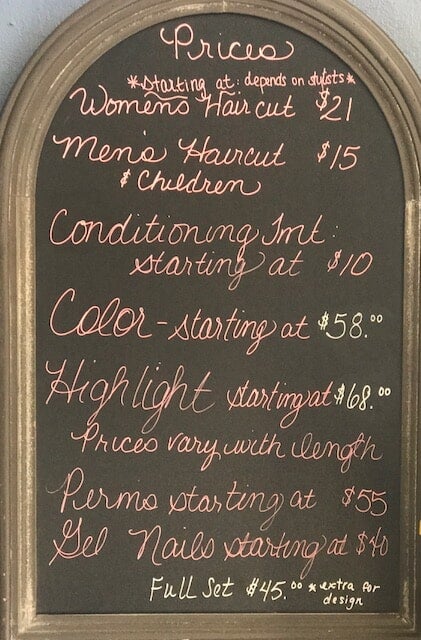 Prices
*starting at: depends on stylists*
Womens Hair cut $21
Men's Haircut $15
& Children
Conditioning Tmt:
starting at $10
Color - starting at $58.00
Highlight starting at $68.00
Prices vary with length
Perms starting at $55
Gel Nails starting at $40
Full Set $45.00 *extra for
design